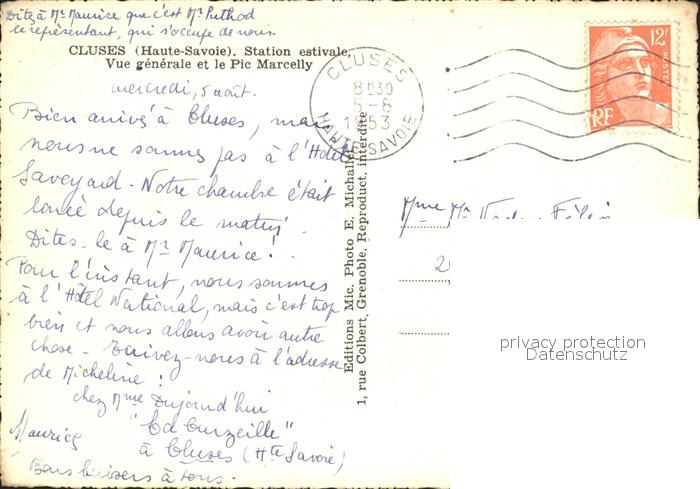 Dites à Mr Maurice que c'est Mr Puthod
le représentant, qui s'occupe de nous.
CLUSES (Haute-Savoie). Station estivale,
Vue générale et le Pic Marcelly
mercredi, 5 août.
Bien arrivé à Cluses, mais
nous ne sommes pas à l'Hôtel
Savoyard - Notre chambre était
louée depuis le matin.
Dites-le à Mr Maurice !
Pour l'instant, nous sommes
à l'Hôtel National, mais c'est trop
bien et nous allons avoir autre
chose - Ecrivez-nous à l'adresse
de Micheline :
chez Mme Dujourd'hui
à Cluses (Hte Savoie)
Maurice
Bons baisers à tous.
Editions Mic. Photo E. Michallet
1, rue Colbert, Grenoble, Reproduct. interdite
CLUSES
8H30
5-8
1953
HAUTE SAVOIE
12F
POSTES
RF
Mme Mr
privacy protection
Datenschutz